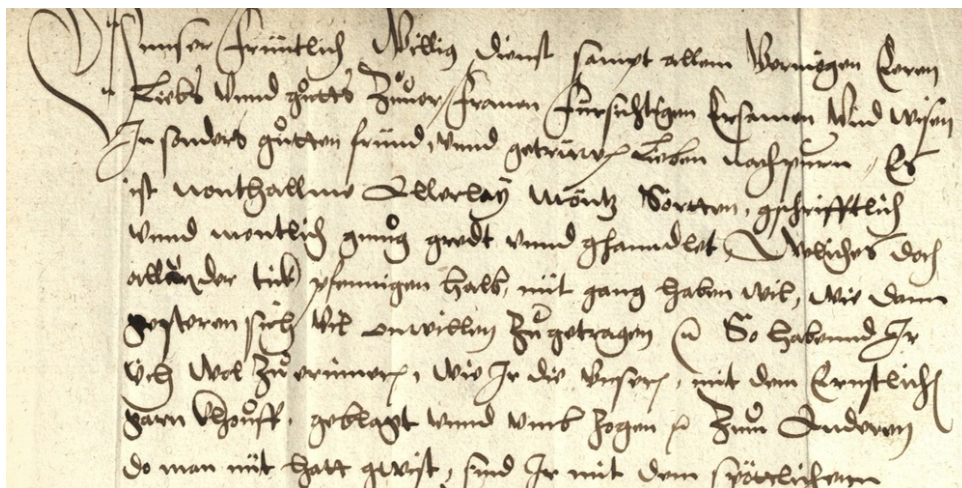 Unnser früntlich Willig dienst sampt allem Vermögen Eeren
Liebs Vnnd gůtts Zůuor, Fromen Fürsichtigen Ersamen Vnd wysen
In sonders gůtten fründ, vnnd getrüwen Lieben Nachpurn, Es
ist nonthallme Allerlaÿ Möntz Sortten, gschrifftlich
vnnd montlich gnůg gredt vnnd ghanndlet, Weliches doch
allein der pfennigen halb, nüt gang haben wil, wie dann
gesteren sich vil onwillen Zůgetragen So habennd Ir
üch wol Zů erinneren, wie Ir die vnseren, mit dem Ernstlichen
garn khouff, geklagt vnnd vmb zogen Zům Anderen
do man nüt hatt gwist, sind Ir mit dem spöttlichenn